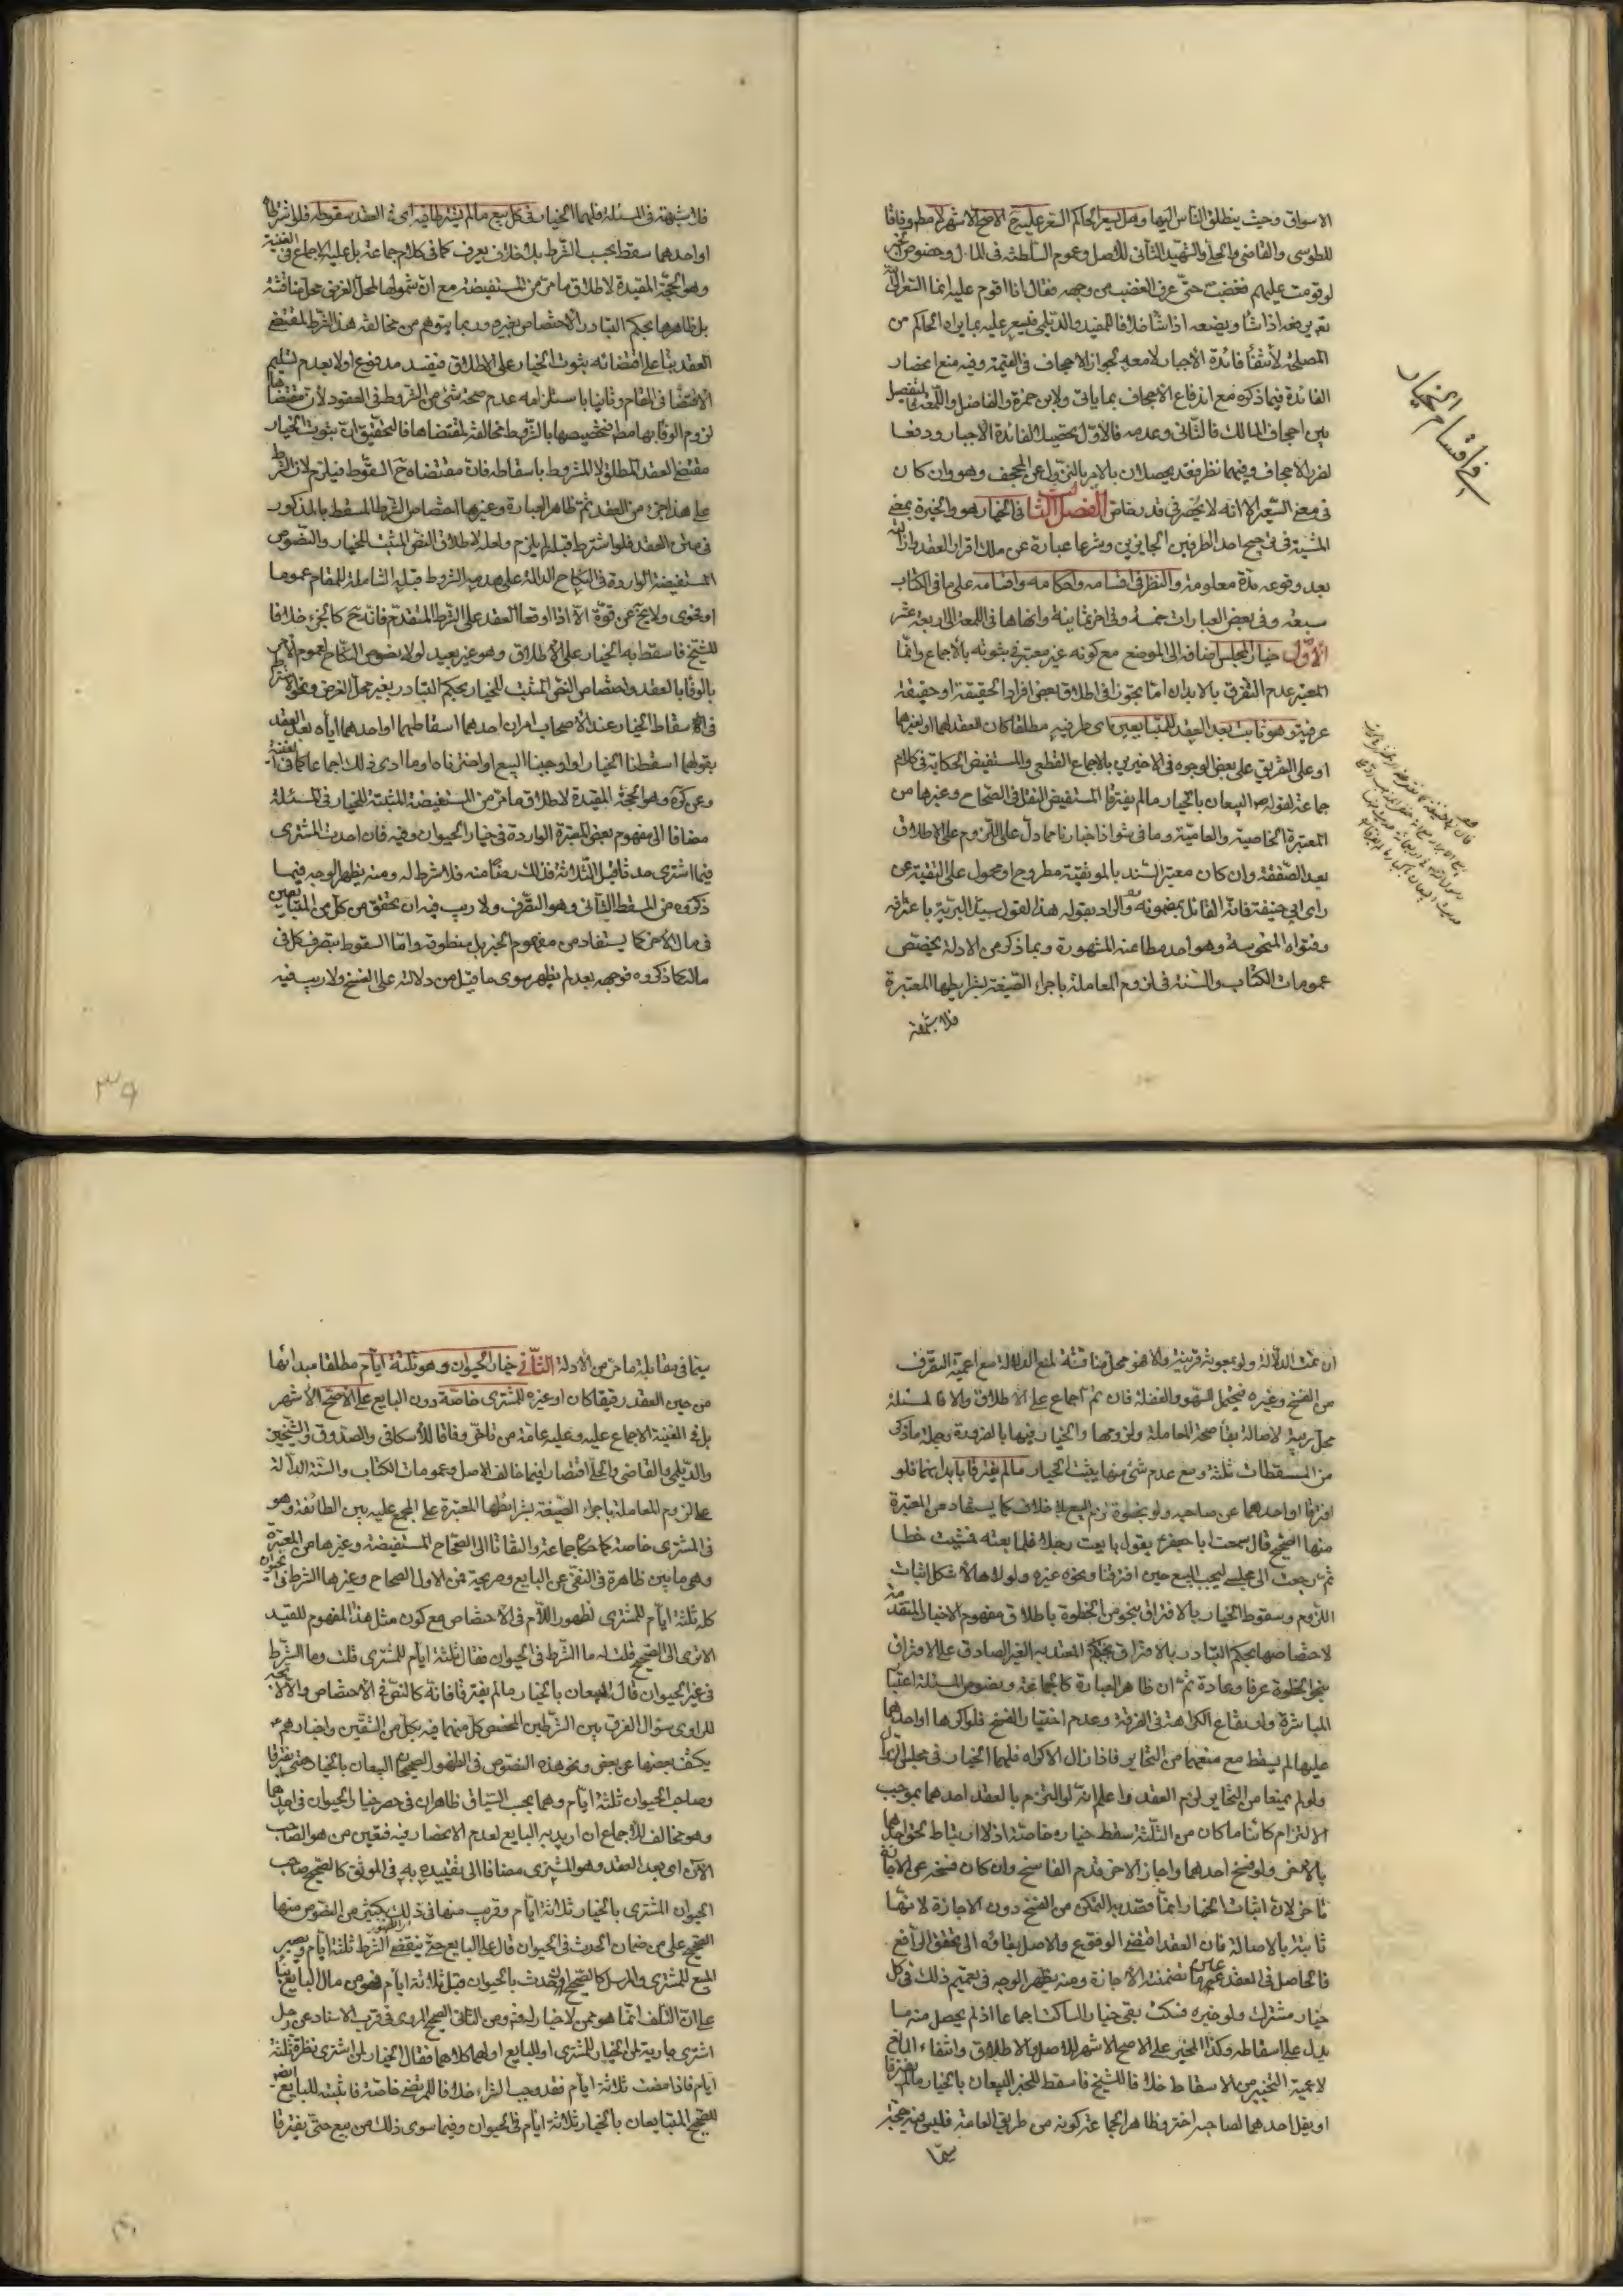 الاسواق وحيث ينطلق الناس اليها وهل يسعر الحاكم السعر عليه ح الاصح الاشهر لا مطلقا وفاقا
للطوسي والقاضي والحلي والشهيد الثاني للاصل وعموم السلطنة في المال وخصوص الخبر
لو قومت عليهم فغضب حتى عرف الغضب من وجهه فقال انا اقوم عليهم انما السعر الى الله
تعالى يرفعه اذا شاء ويضعه اذا شاء خلافا للمفيد والديلمي فيسعر عليه بما يراه الحاكم من
المصلحة لانتفاء فائدة الاجبار لا معه لجواز الاجحاف في القيمة وفيه منع انحصار
الفائدة فيما ذكره مع اندفاع الاجحاف بما ياتي ولابن حمزة والفاضل واللمعة فالتفصيل
بين اجحاف المالك فالثاني وعدمه فالاول تحصيلا لفائدة الاجبار ودفعا
لضرر الاجحاف وفيهما نظر فقد يحصلان بالامر بالنزول عن المجحف وهو وان كان
في معنى السعر الا انه لا يحصر في قدر خاص الفصل الثاني في الخيار وهو والخيرة بمعنى
المشية في ترجيح احد الطرفين الجايزين وشرعا عبارة عن ملك اقرار العقد وازالته
بعد وقوعه مدة معلومة والنظر في اقسامه واحكامه واقسامه على ما في الكتاب
سبعة وفي بعض العبارات خمسة وفي اخر ثمانية وانهاها في اللمعة الى اربعة عشر
الاول خيار المجلس اضافة الى الموضع مع كونه غير معتبر في ثبوته بالاجماع وانما
المعتبر عدم التفرق بالابدان اما تجوزا في اطلاق بعض افراد الحقيقة او حقيقة
عرفية وهو ثابت بعد العقد للمتبايعين اى طرفيه مطلقا كان العقد لهما او لغيرهما
او على التفريق على بعض الوجوه في الاخيرين بالاجماع القطعي والمستفيض الحكاية في كلام
جماعة لقوله ص البيعان بالخيار ما لم يفترقا المستفيض النقل في الصحاح وغيرها من
المعتبرة الخاصية والعامية وما في شواذ اخبارنا مما دل على اللزوم على الاطلاق
بعد الصفقة وان كان معتبر السند بالموثقية مطروح او محمول على التقية عن
راى ابي حنيفة فانه القائل بمضمونه والراد بقوله هذا لقول سيد البرية باعترافه
وفتواه المنحوسة وهو احد مطاعنه المشهورة وبما ذكر من الادلة يختص
عمومات الكتاب والسنة في لزوم المعاملة باجراء الصيغة بشرايطها المعتبرة
فلا شبهة
في اقسام الخيار
فلا شبهة في المسئلة فلهما الخيار في كل بيع ما لم يشترطا فيه اى في العقد سقوطه فلو شرطاه
او احدهما سقط بحسب الشرط بلا خلاف يعرف كما في كلام جماعة بل عليه الاجماع في الغنية
وهو الحجة المقيدة لاطلاق ما مر من المستفيضة مع ان شمولها لمحل الفرض محل مناقشة
بل ظاهرها بحكم التبادر الاختصاص بغيره وربما يتوهم من مخالفة هذا الشرط لمقتضى
العقد بناء على اقتضائه ثبوت الخيار على الاطلاق فيفسد مدفوع اولا بعدم تسليم
الاقتضاء في المقام وثانيا باستلزامه عدم صحة شئ من الشروط في العقود لان مقتضاها
لزوم الوفا بها مطلقا فتخصيصها بالشروط مخالفة لمقتضاها فالتحقيق ان ثبوت الخيار
مقتضى العقد المطلق لا المشروط باسقاطه فان مقتضاه ح السقوط فيلزم لان الشرط
على هذا جزء من العقد ثم ظاهر العبارة وغيرها اختصاص الشرط المسقط بالمذكور
في متن العقد فلو اشترط قبله لم يلزم ولعله لاطلاق النص المثبت للخيار والنصوص
المستفيضة الواردة في النكاح الدالة على هدم الشروط قبله الشاملة للمقام عموما
او فحوى ولا يخ عن قوة الا اذا اوقعا العقد على الشرط المتقدم فانه ح كالجزء خلافا
للشيخ فاسقط به الخيار على الاطلاق وهو غير بعيد لولا نصوص النكاح لعموم الامر
بالوفا بالعقد واختصاص النص المثبت للخيار بحكم التبادر بغير محل الفرض ونحو الاشتراط
في اسقاط الخيار عند الاصحاب امران احدهما اسقاطهما او احدهما اياه بعد العقد
بقولهما اسقطنا الخيار او اوجبنا البيع او اخترناه او ما ادى ذلك اجماعا كما في الغنية
وعن كره وهو الحجة المقيدة لاطلاق ما مر من المستفيضة المثبتة للخيار في المسئلة
مضافا الى مفهوم بعض المعتبرة الواردة في خيار الحيوان وفيه فان احدث المشترى
فيما اشترى حدثا قبل الثلاثة فذلك رضا منه فلا شرط له ومنه يظهر الوجه فيما
ذكروه من المسقط الثاني وهو التصرف ولا ريب فيه ان تحقق من كل من المتبايعين
في مال الاخر كما يستفاد من مفهوم الخبر بل منطوقه واما السقوط بتصرف كل في
ماله كما ذكروه فوجهه بعد لم يظهر سوى ما قيل من دلالته على الفسخ ولا ريب فيه
٣٩
ان تمت الدلالة ولو بمعونة قرينة والا فهو محل مناقشة لمنع الدلالة مع اعمية التصرف
من الفسخ وغيره فيحتمل السهو والغفلة فان تم اجماع على الاطلاق والا فالمسئلة
محل ريبة لاصالة بقاء صحة المعاملة ولزومها والخيار فيها بالضرورة وجملة ما ذكر
من المسقطات ثلثة ومع عدم شئ منها يثبت الخيار ما لم يفترقا بابدانهما فلو
افترقا او احدهما عن صاحبه ولو بخطوة لزم البيع بلا خلاف كما يستفاد من المعتبرة
منها الصحيح قال سمعت ابا جعفر ع يقول بايعت رجلا فلما بعته قمت فمشيت خطا
ثم رجعت الى مجلسي ليجب البيع حين افترقنا ونحوه غيره ولولاها لاشكل اثبات
اللزوم وسقوط الخيار بالافتراق بنحو من الخطوة باطلاق مفهوم الاخبار المتقدمة
لاختصاصها بحكم التبادر بالافتراق بحكم المعتد به الغير الصادق على الافتراق
بنحو الخطوة عرفا وعادة ثم ان ظاهر العبارة كالجماعة ونصوص المسئلة اعتبار
المباشرة وانتفاع الكراهة في الفرقة وعدم اختيار الفسخ فلو اكرها او احدهما
عليها لم يسقط مع منعهما من التخاير فاذا زال الاكراه فلهما الخيار في مجلس الزوال
ولو لم يمنعا من التخاير لزم العقد واعلم انه لو التزم بالعقد احدهما بموجب
الالتزام كائنا ما كان من الثلثة سقط خياره خاصة اذ لا ارتباط لحق احدهما
بالاخر ولو فسخ احدهما واجاز الاخر قدم الفاسخ وان كان فسخ عن الاجازة
تاخر لان اثبات الخيار انما قصد به التمكن من الفسخ دون الاجازة لانها
ثابتة بالاصالة فان العقد اقتضى الوقوع والاصل بقاؤه الى تحقق الرافع
فالحاصل في العقد عين ما تضمنته الاجازة ومنه يظهر الوجه في تعميم ذلك في كل
خيار مشترك ولو خيره فسكت بقى خيار الساكت اجماعا اذ لم يحصل منه ما
يدل على اسقاطه وكذا المخير على الاصح الاشهر للاصل والاطلاق وانتفاء المانع
لاعمية التخيير من الاسقاط خلافا للشيخ فاسقط للخبر البيعان بالخيار ما لم يفترقا
او يقل احدهما لصاحبه اختر وظاهر الجماعة كونه من طريق العامة فليس فيه حجة
سيما
سيما في مقابلة ما مر من الادلة الثاني خيار الحيوان وهو ثلثة ايام مطلقا مبدائها
من حين العقد رقيقا كان او غيره للمشترى خاصة دون البايع على الاصح الاشهر
بل في الغنية الاجماع عليه وعليه عامة من تاخر وفاقا للاسكافي والصدوق والشيخين
والديلمي والقاضي والحلي اقتصارا فيما خالف الاصل وعمومات الكتاب والسنة الدالة
على لزوم المعاملة باجراء الصيغة بشرايطها المعتبرة على المجمع عليه بين الطائفة وهو
في المشترى خاصة كما حكاه جماعة والتفاتا الى الصحاح المستفيضة وغيرها من المعتبرة
وهي ما بين ظاهرة في النفي عن البايع وصريحة فمن الاول الصحاح وغيرها الشرط في الحيوان
كله ثلثة ايام للمشترى لظهور اللام في الاختصاص مع كون مثل هذا المفهوم للقيد
الا ترى الى الصحيح قلت له ما الشرط في الحيوان فقال ثلثة ايام للمشترى قلت وما الشرط
في غير الحيوان قال البيعان بالخيار ما لم يفترقا فانه كالنص في الاختصاص والا لاتجه
للراوى سؤال الفرق بين الشرطين المخصص كل منهما فيه بكل من الشقين واخبارهم ع
يكشف بعضها عن بعض ونحو هذه النصوص في الظهور الصحيحان البيعان بالخيار حتى يفترقا
وصاحب الحيوان ثلثة ايام وهما بحسب السياق ظاهران في حصر خيار الحيوان في احدهما
وهو مخالف للاجماع ان اريد به البايع لعدم الانحصار فيه فتعين من هو الصاحب
الان اى بعد العقد وهو المشترى مضافا الى تقييده به في الموثق كالصحيح صاحب
الحيوان المشترى بالخيار ثلاثة ايام وقرب منها في ذلك بكثير من النصوص منها
الصحيح على من ضمان الحدث في الحيوان قال على البايع حتى ينقضي الشرط ثلثة ايام ويصير
المبيع للمشترى والمرسل كالصحيح ان حدث بالحيوان قبل ثلاثة ايام فهو من مال البايع بناء
على ان التلف انما هو ممن لا خيار له ومن الثاني الصحيح المروى في قرب الاسناد عن رجل
اشترى جارية لمن الخيار للمشترى او للبايع او لهما كلاهما فقال الخيار لمن اشترى نظرة ثلثة
ايام فاذا مضت ثلاثة ايام فقد وجب الشراء خلافا للمرتضى خاصة فاثبته للبايع ايضا
للصحيح المتبايعان بالخيار ثلاثة ايام في الحيوان وفيما سوى ذلك من بيع حتى يفترقا